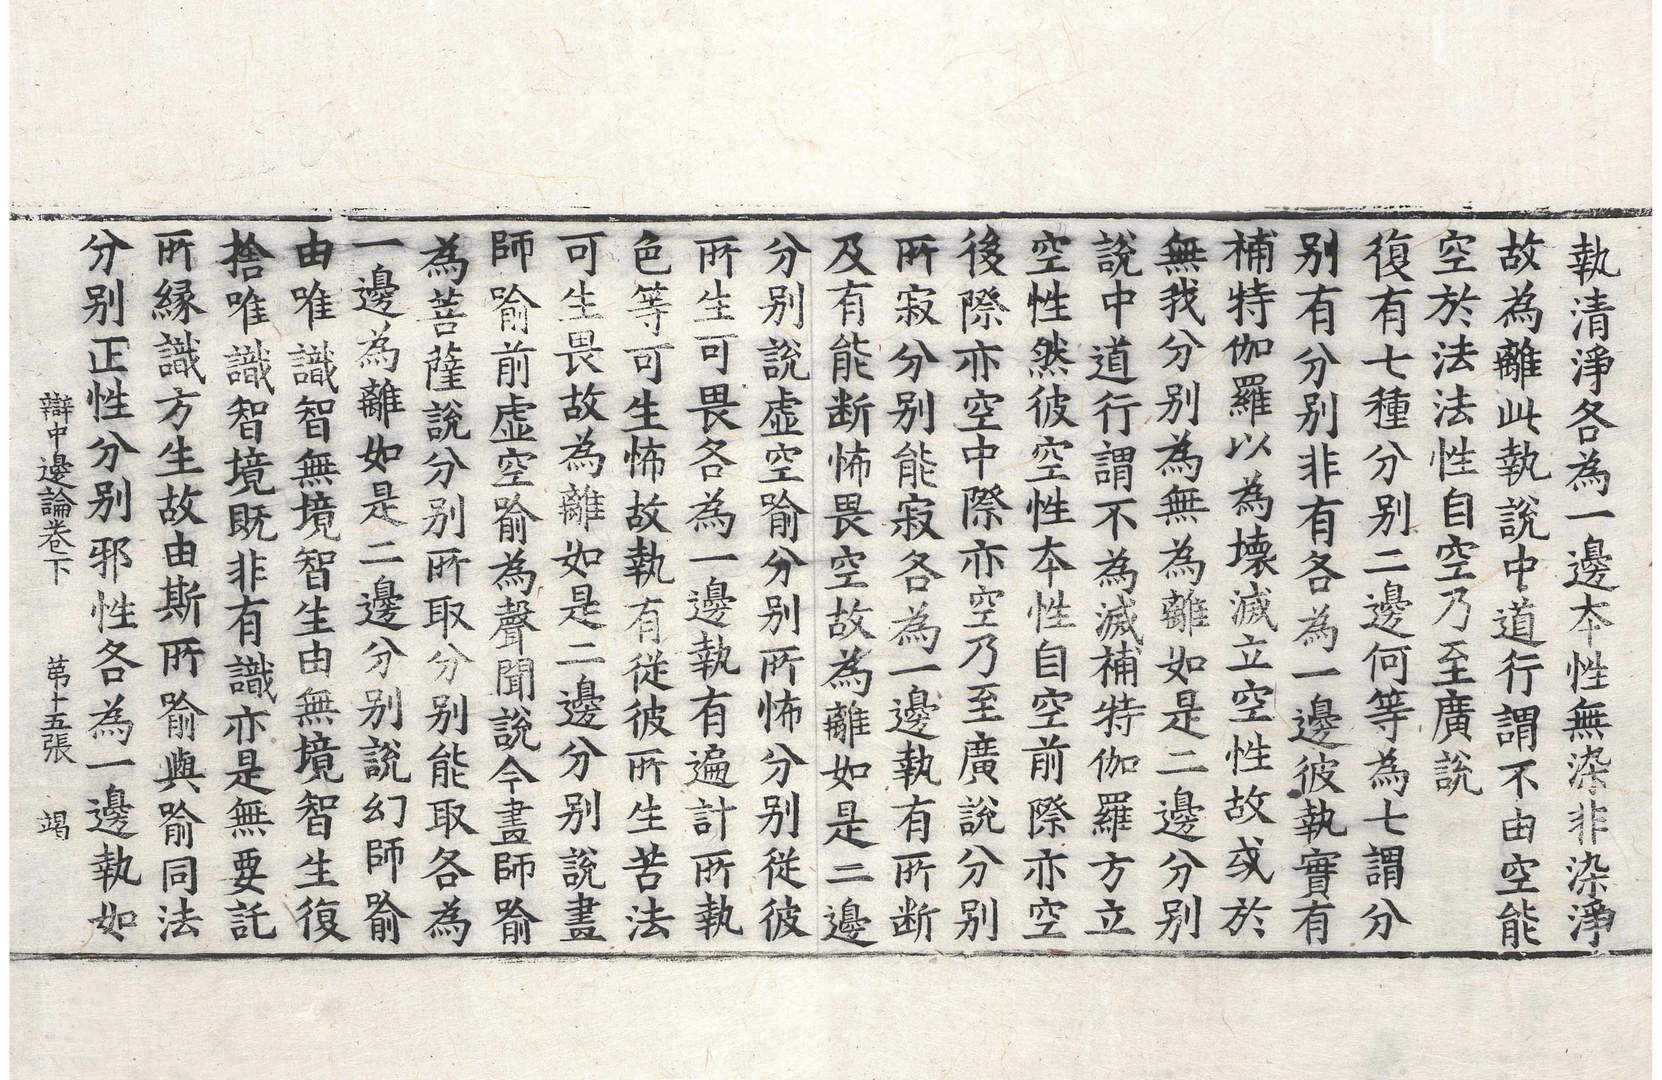 執清淨各為一邊本性無染非染淨
故為離此執說中道行謂不由空能
空於法法性自空乃至廣說
復有七種分別二邊何等為七謂分
別有分別非有各為一邊彼執實有
補特伽羅以為壞滅立空性故或於
無我分別為無為離如是二邊分別
說中道行謂不為滅補特伽羅方立
空性然彼空性本性自空前際亦空
後際亦空中際亦空乃至廣說分別
所寂分別能寂各為一邊執有所断
及有能断怖畏空故為離如是二邊
分別說虛空喻分別所怖分別從彼
所生可畏各為一邊執有遍計所執
色等可生怖故執有從彼所生苦法
可生畏故為離如是二邊分別說畫
師喻前虛空喻為聲聞說今畫師喻
為菩薩說分別所取分別能取各為
一邊為離如是二邊分別說幻師喻
由唯識智無境智生由無境智生復
捨唯識智境既非有識亦是無要託
所緣識方生故由斯所喻與喻同法
分別正性分別邪性各為一邊執如
辯中邊論卷下 苐十五張 竭